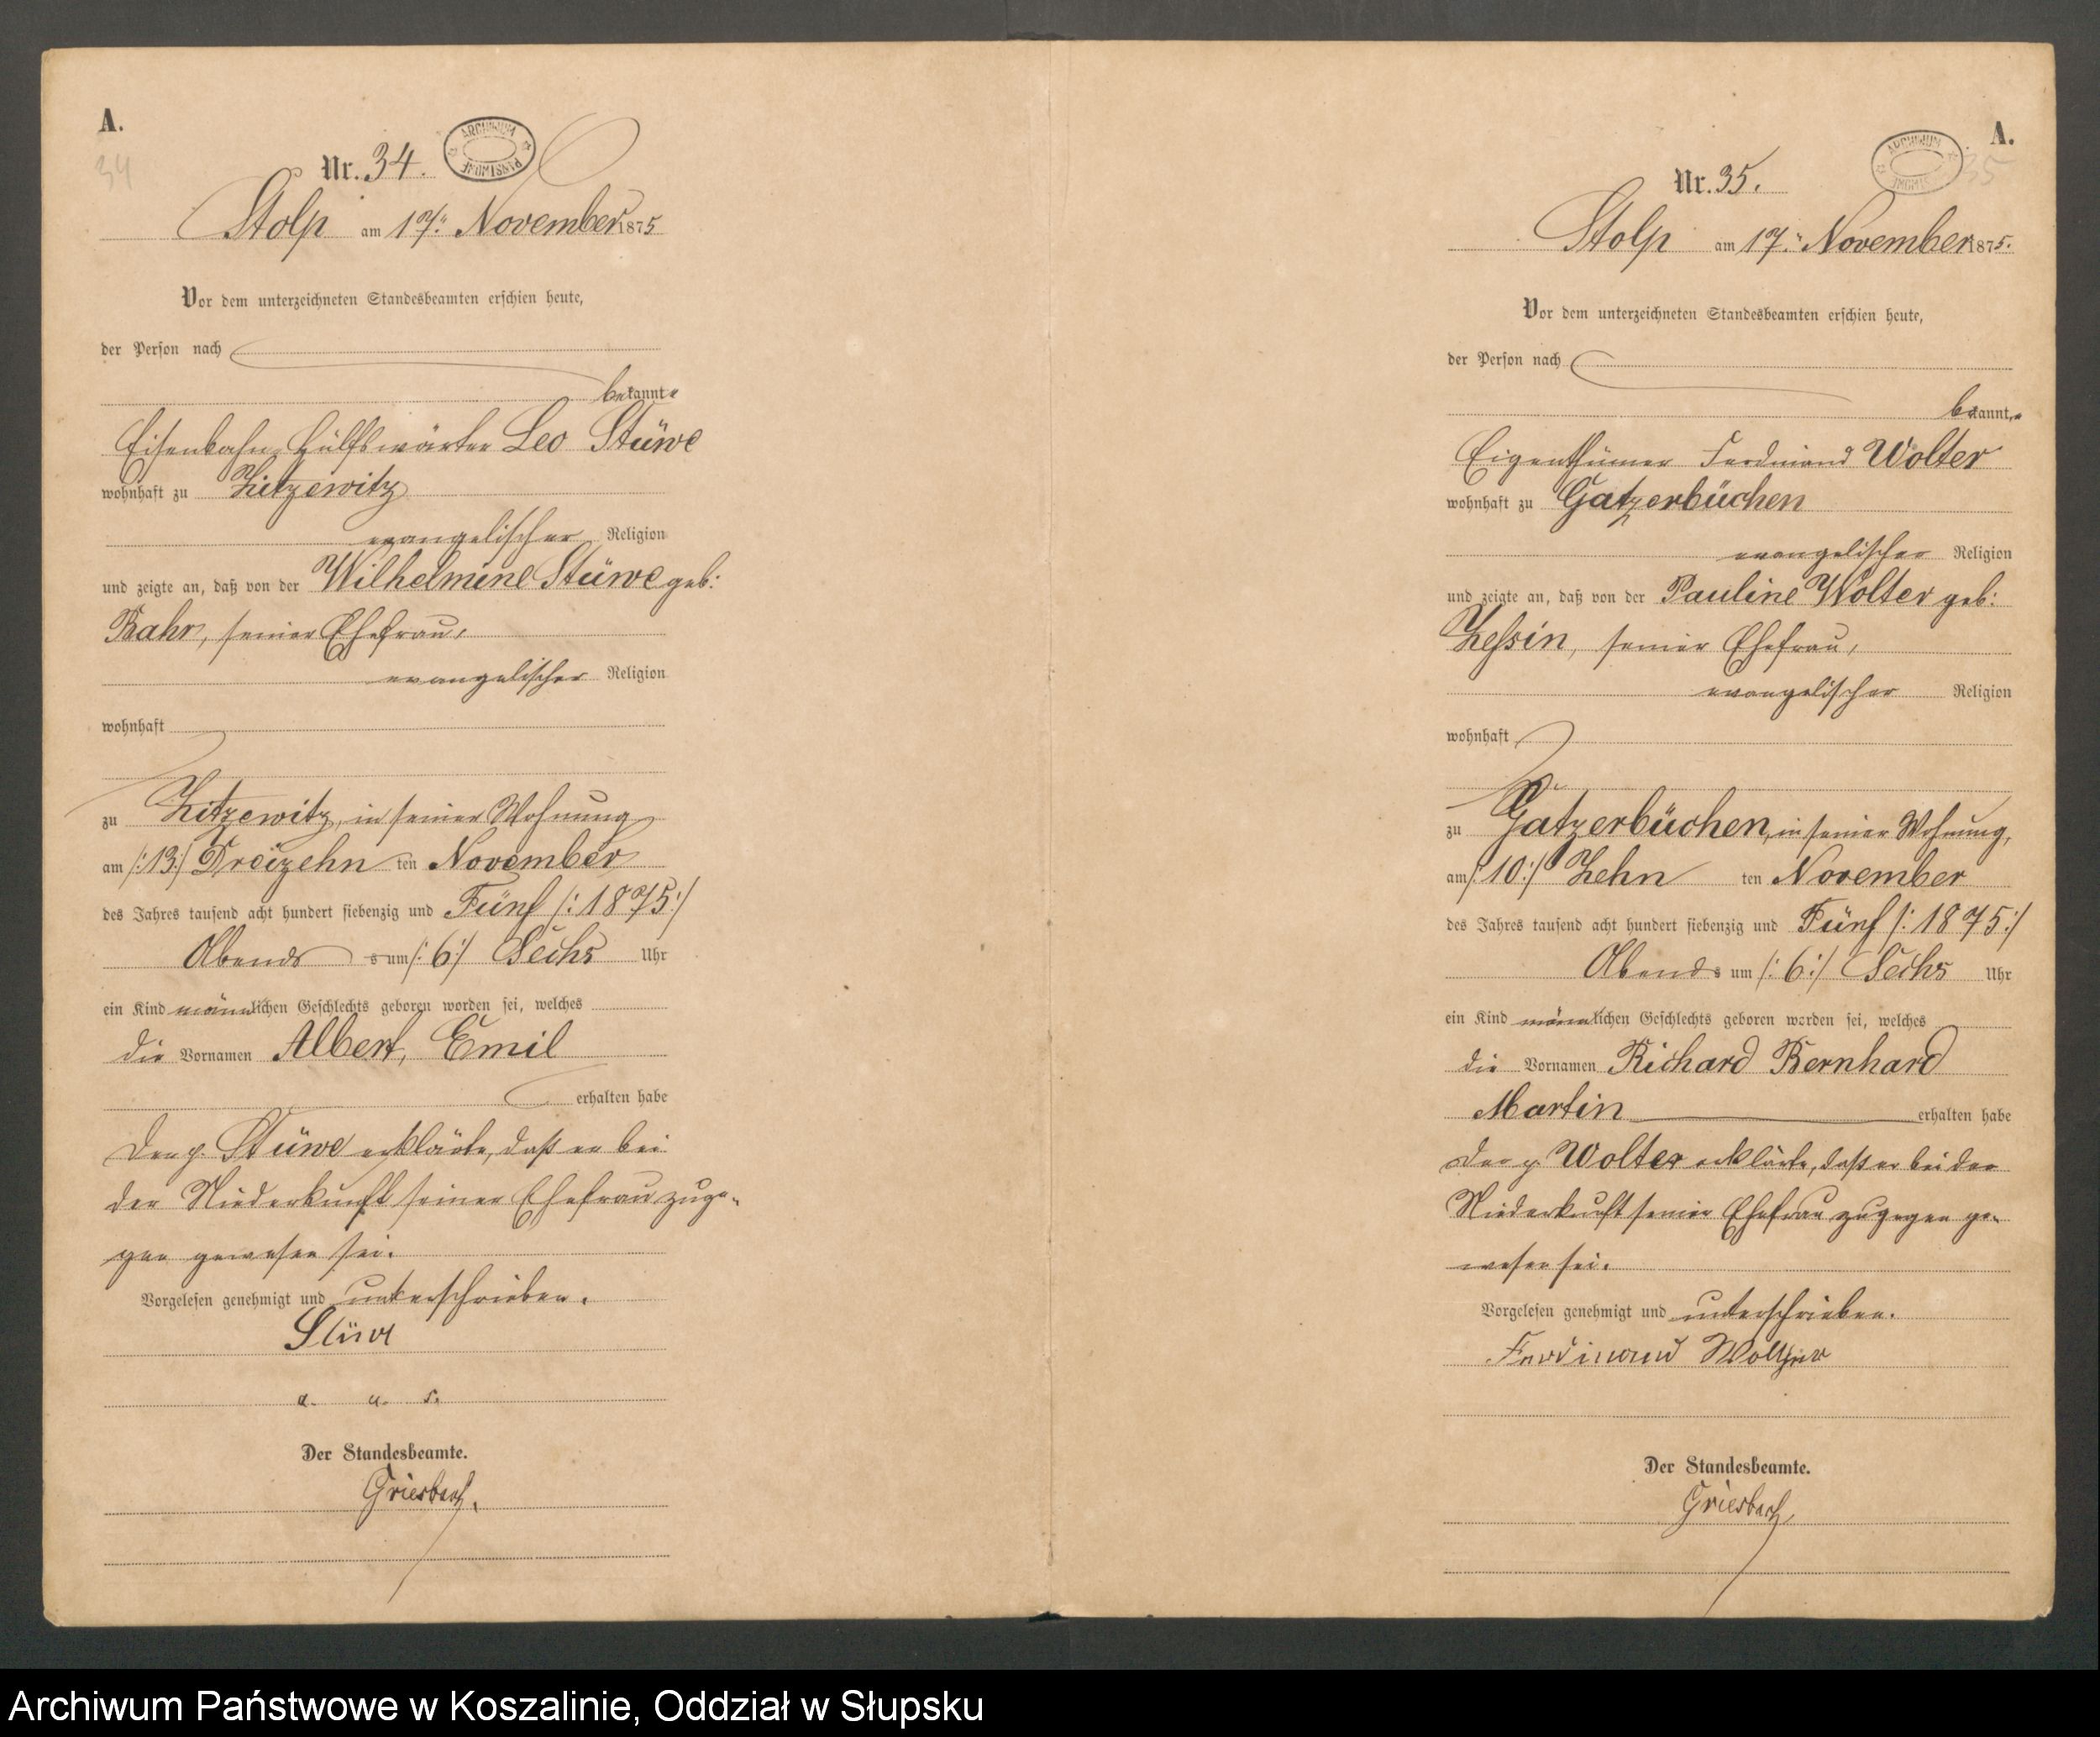 A.
34
Nr. 34.
ARCHIWUM PAŃSTWOWE
Stolp am 17. November 1875
Vor dem unterzeichneten Standesbeamten erschien heute,
der Person nach
bekannt,
Eisenbahn-Hülfswärter Leo Stüwe
wohnhaft zu Zitzewitz
evangelischer Religion
und zeigte an, daß von der Wilhelmine Stüwe geb:
Bahr, seiner Ehefrau,
evangelischer Religion
wohnhaft
zu Zitzewitz, in seiner Wohnung
am /:13:/ Dreizehn ten November
des Jahres tausend acht hundert siebenzig und Fünf /:1875:/
Abends um /:6:/ Sechs Uhr
ein Kind männlichen Geschlechts geboren worden sei, welches
die Vornamen Albert, Emil
erhalten habe
Der p. Stüwe erklärte, daß er bei
der Niederkunft seiner Ehefrau zuge-
gen gewesen sei.
Vorgelesen genehmigt und unterschrieben.
Stüwe
a. u. s.
Der Standesbeamte.
Griesbach.
A.
35
Nr. 35.
Stolp am 17. November 1875.
Vor dem unterzeichneten Standesbeamten erschien heute,
der Person nach
bekannt,
Eigenthümer Ferdinand Wolter
wohnhaft zu Gatzerbüchen
evangelischer Religion
und zeigte an, daß von der Pauline Wolter geb:
Zessin, seiner Ehefrau,
evangelischer Religion
wohnhaft
zu Gatzerbüchen, in seiner Wohnung,
am /:10:/ Zehn ten November
des Jahres tausend acht hundert siebenzig und Fünf /:1875:/
Abends um /:6:/ Sechs Uhr
ein Kind männlichen Geschlechts geboren worden sei, welches
die Vornamen Richard Bernhard
Martin erhalten habe
Der p Wolter erklärte, daß er bei der
Niederkunft seiner Ehefrau zugegen ge-
wesen sei.
Vorgelesen genehmigt und unterschrieben.
Ferdinand
Der Standesbeamte.
Griesbach
Archiwum Państwowe w Koszalinie, Oddział w Słupsku